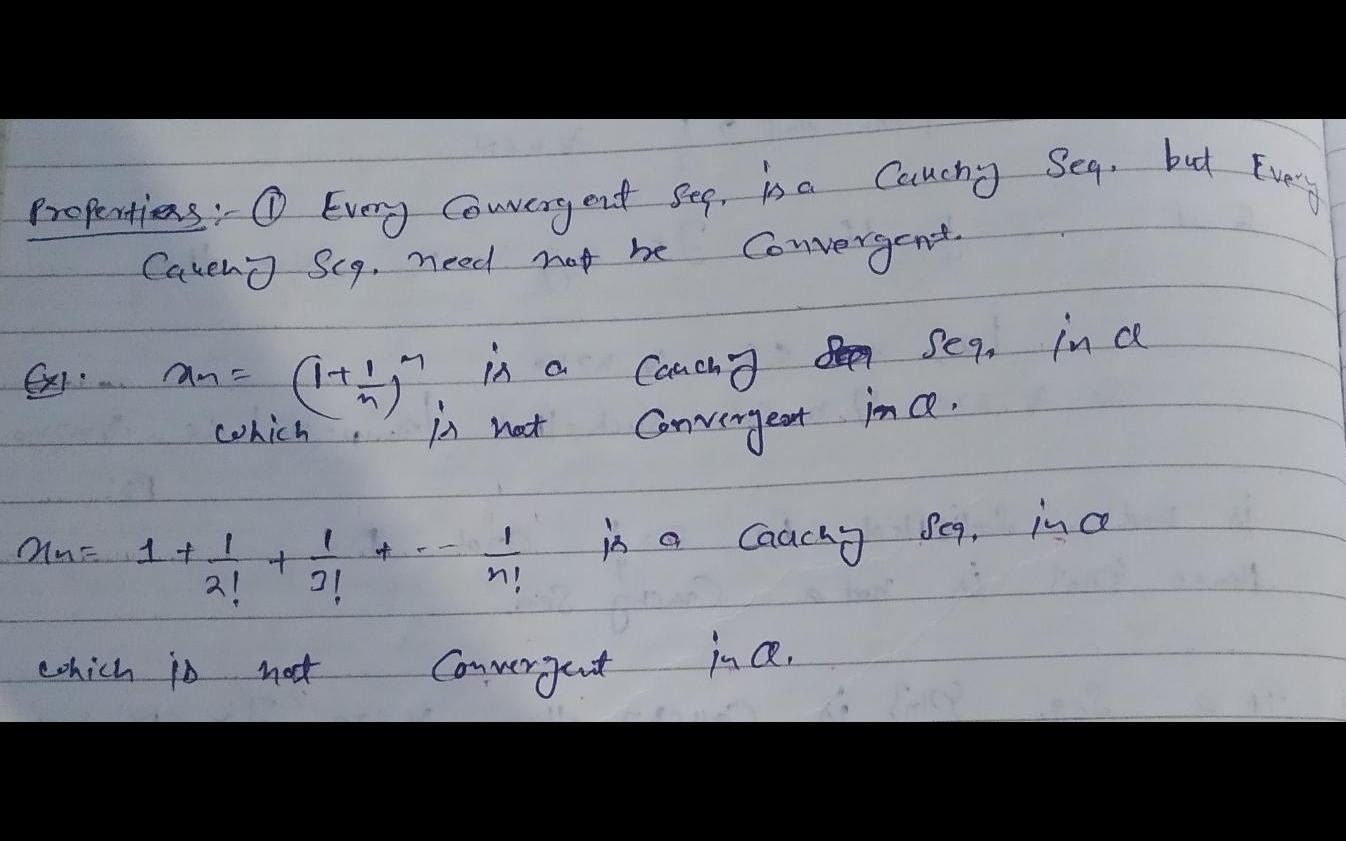 Properties:- ① Every Convergent Seq. is a Cauchy Seq. but Every
Cauchy Seq. need not be Convergent.
Ex:. xn = (1+1/n)^n is a Cauchy Seq. in Q
which is not Convergent in Q.
xn = 1 + 1/2! + 1/3! + -- 1/n! is a Cauchy Seq. in Q
which is not Convergent in Q.